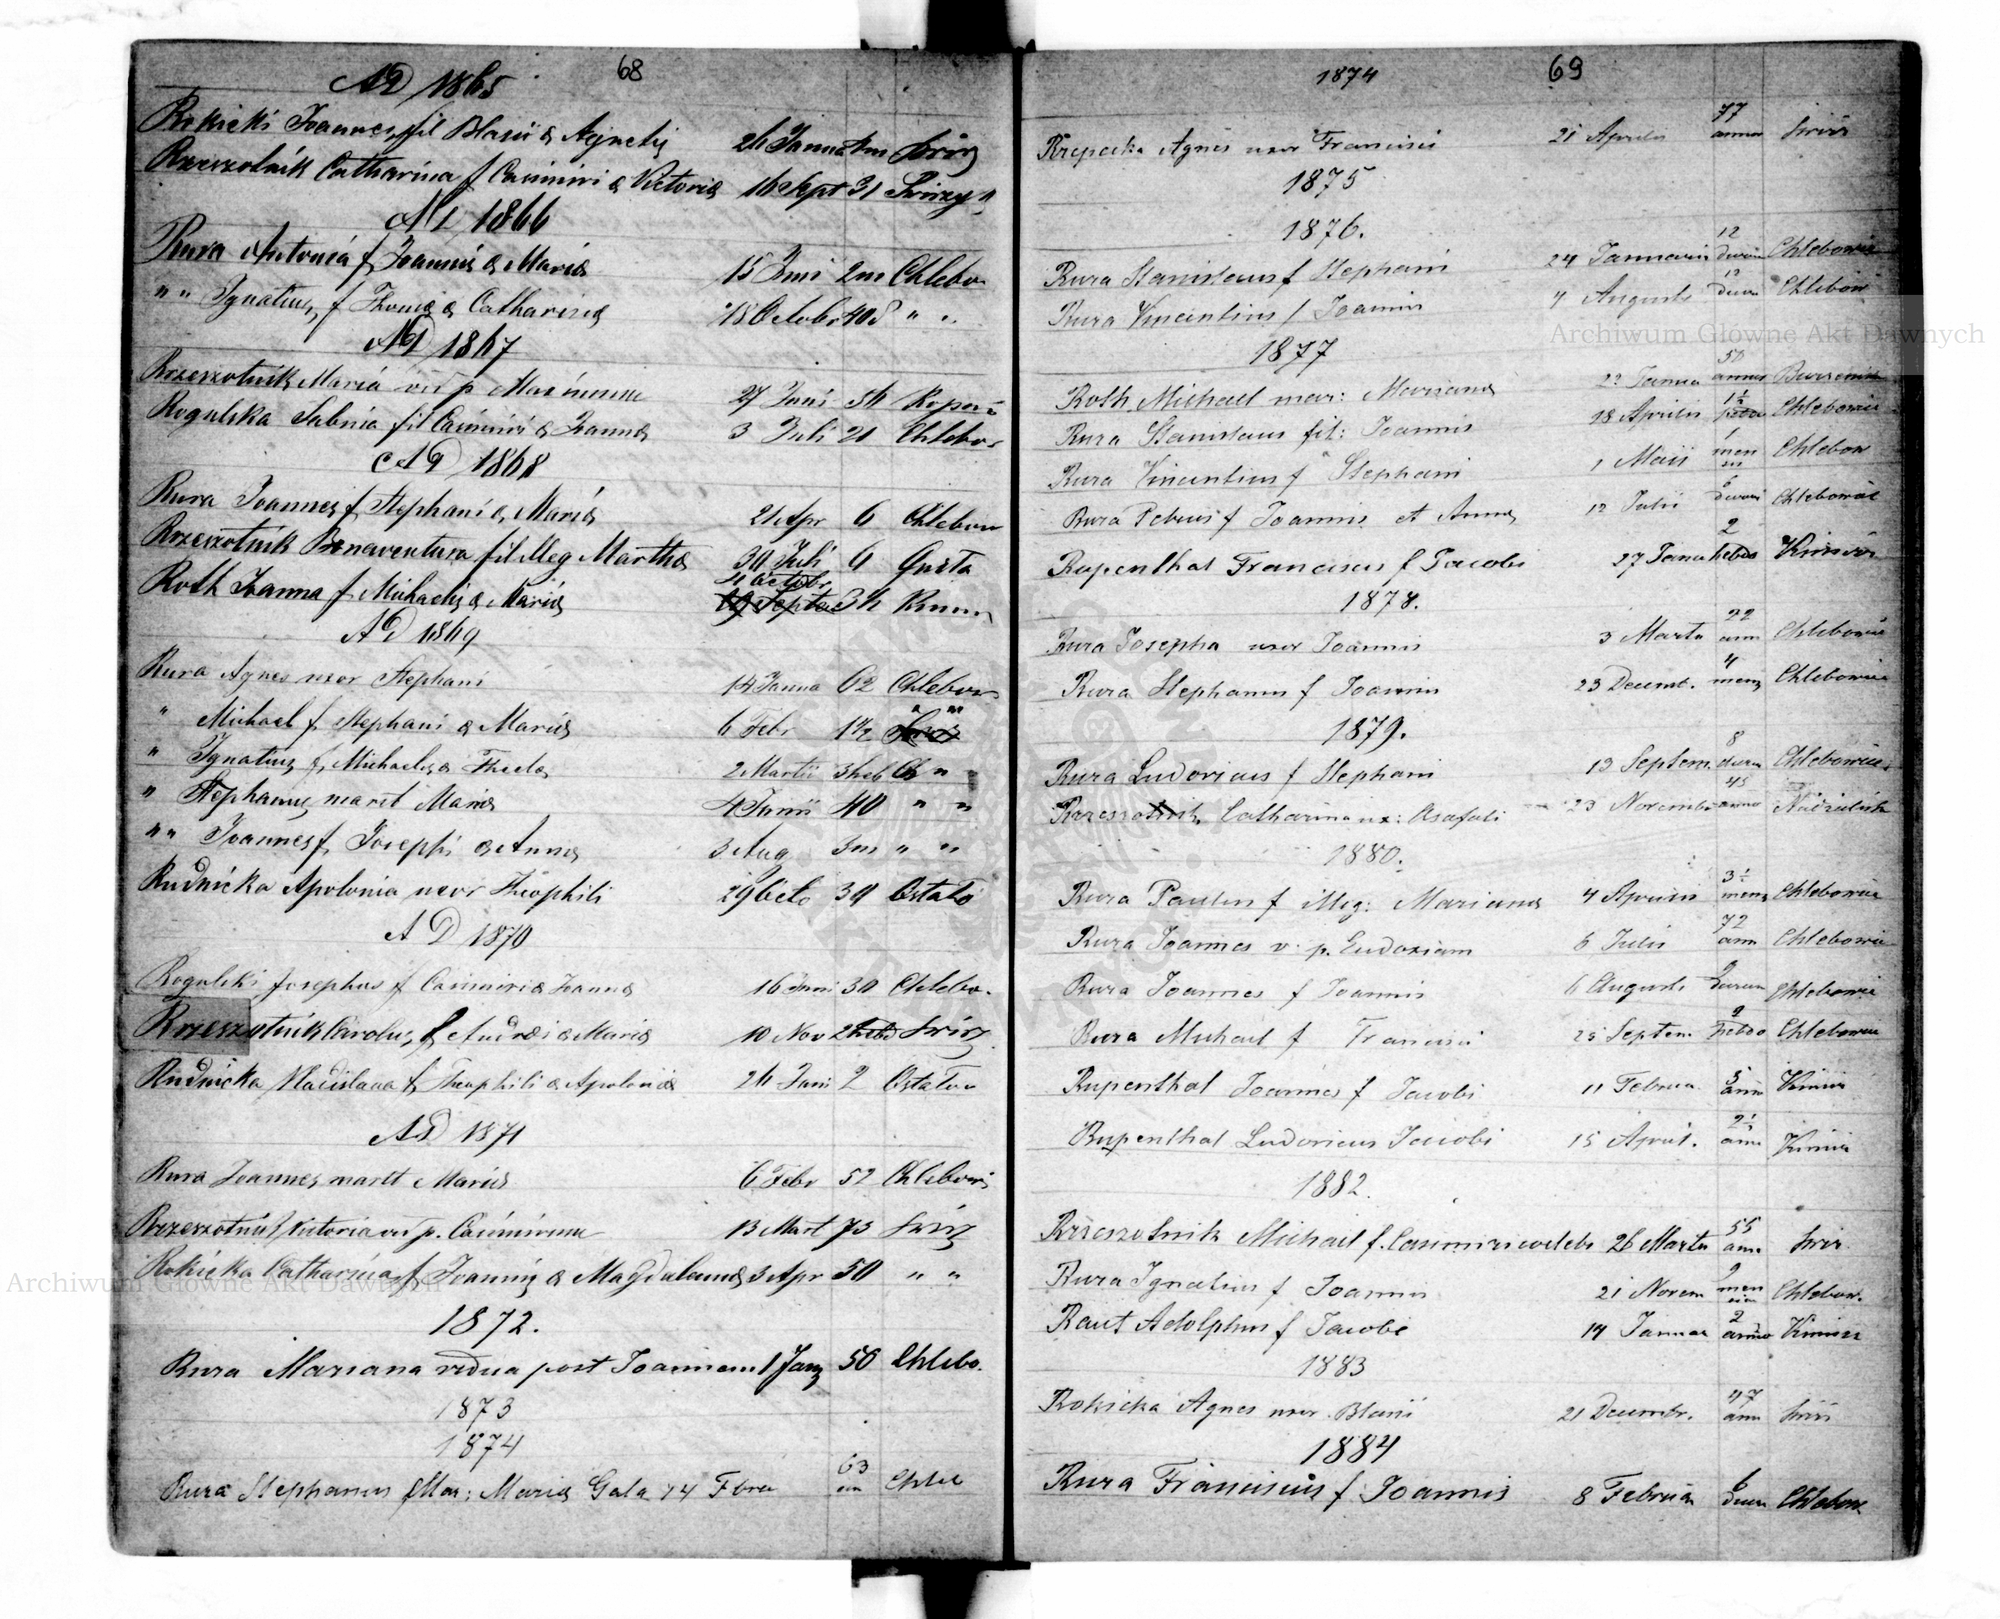 68
AD 1865
Rokicki Joannes fil Blasii & Agnetis 26 Janua 4m Świrz
Rzeszotnik Catharina f Casimiri & Victoriae 16 Sept 31 Świrzy
AD 1866
Rura Antonia f Joannis & Mariae 15 Juni 2m Chlebo
" " Ignatius f Thomae & Catharinae 18 Octobr 408 " "
AD 1867
Rzeszotnik Maria vid p. Maximum 27 Junii 56
Rogulska Sabina fil Casimiri & Joannae 3 Juli 21 Chlebo
AD 1868
Rura Joannes f Stephani & Mariae 21 Apr 6 Chlebow
Rzeszotnik Bonaventura fil illeg Marthae 30 Juli 6
Roth Joanna f Michaelis & Mariae 11 Octobr 36
AD 1869
Rura Agnes uxor Stephani 14 Janua 62 Chlebow
" Michael f Stephani & Mariae 6 Febr 1 1/2 " "
" Ignatius f Michaelis & Theclae 2 Martii 3 heb Ch " "
" Stephanus marit Mariae 4 Junii 40 " "
" " Joannes f Josephi & Annae 3 Aug 3m " "
Rudnicka Apolonia uxor Theophili 29 Octo 39 Ostało
AD 1870
Rogulski Josephus f Casimiri & Joannae 16 Juni 30 Chlebo.
Rzeszotnik Carolus f Andrei & Mariae 10 Nov 2 hebd Świrz
Rudnicka Vladislava f Theophili & Apoloniae 26 Juni 2 Ostałow
AD 1871
Rura Joannes marit Mariae 6 Febr 52 Chlebowi
Rzeszotnik Victoria vid p. Casimirum 13 Mart 73 Świrz
Rokicka Catharina f Joannis & Magdalenae 3 Apr 50 " "
1872.
Rura Mariana vidua post Joannem 1 Jany 50 Chlebo.
1873
1874
Rura Stephanus Mar: Mariae Gala 14 Fbru 63 Chleb
69
1874
Rzepecka Agnes uxor Francisci 21 Aprilis 77 annor Świrz
1875
1876.
Rura Stanislaus f Stephani 24 Januarii 12 dierum Chlebowice
Rura Vincentius f Joannis 4 Augusti 13 dierum Chlebow
1877
Roth Michael mar: Marianae 22 Janua 50 annor
Rura Stanislaus fil: Joannis 18 Aprilis 1 1/2 hebdo Chlebowice
Rura Vincentius f Stephani 1 Maii 1 mensis Chlebow
Rura Petrus f Joannis et Annae 12 Julii 6 dierum Chlebowice
Rupenthal Franciscus f Jacobi 27 Janua 2 hebdo Kimirz
1878.
Rura Josepha uxor Joannis 3 Marta 22 ann Chlebowice
Rura Stephanus f Joannis 23 Decemb. 4 mens Chlebowice
1879.
Rura Ludovicus f Stephani 13 Septem. 8 dieru Chlebowice
Rzeszotnik Catharina ux: Osafati 23 Novemb 45 anno
1880.
Rura Paulus f illeg: Marianae 4 Aprilis 3 1/2 mens Chlebowice
Rura Joannes v. p. Eudoxiam 6 Julii 72 ann Chlebowice
Rura Joannes f Joannis 6 Augusti 9 dierum Chlebowice
Rura Michael f Francisci 25 Septem. 2 hebdo Chlebowice
Rupenthal Joannes f Jacobi 11 Februa 5 anno Kimirz
Rupenthal Ludovicus Jacobi 15 April. 2 1/2 anno Kimirz
1882.
Rzeszotnik Michael f. Casimiri coelebs 26 Marta 55 ann Świrz
Rura Ignatius f Joannis 21 Novem 2 mensium Chlebow.
Raut Adolphus f Jacobi 14 Januar 2 anno Kimirz
1883
Rokicka Agnes uxor Blasii 21 Decembr. 47 ann Świrz
1884
Rura Franciscus f Joannis 8 Februar 6 dieru Chlebow
Archiwum Główne Akt Dawnych
Archiwum Główne Akt Dawnych